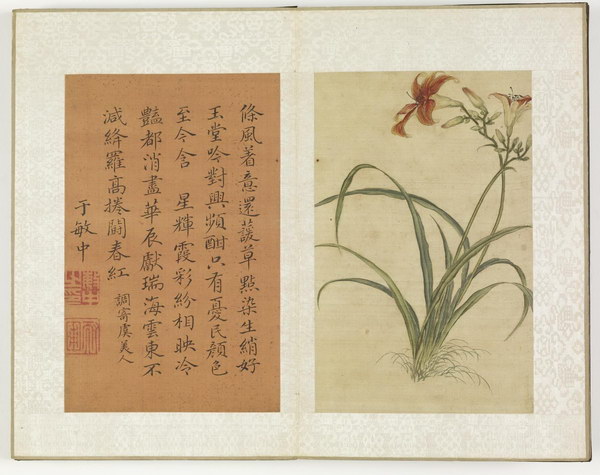 條風著意還蘐草點染生綃好
玉堂吟對興頻酣只有憂民顏色
至今含　星輝霞彩紛相映冷
豔都消盡華辰獻瑞海雲東不
減絳羅高捲鬪春紅　調寄虞美人
于敏中